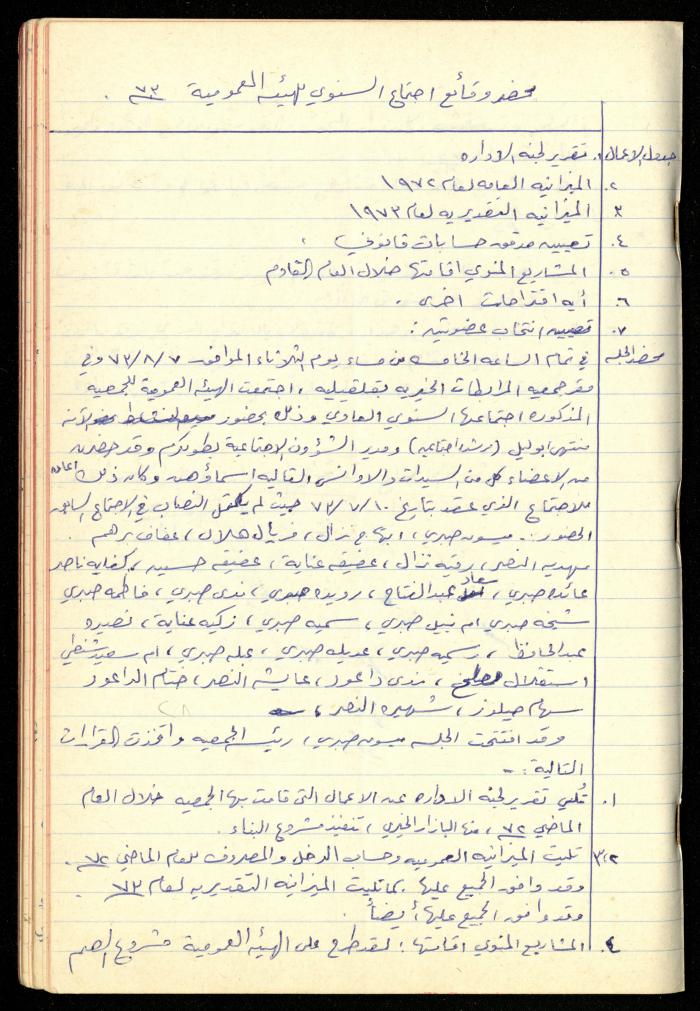 محضر وقائع اجتماع السنوي للهيئه العمومية ٧٣ .
جدول الاعمال ١. تقرير لجنه الاداره
٢. الميزانيه العامه لعام ١٩٧٢
٣ الميزانيه التقديريه لعام ١٩٧٣
٤. تعيين مدقق حسابات قانوني .
٥. المشاريع المنوي اقامتها خلال العام القادم
٦. أيه اقتراحات اخرى .
٧. تعيين انتخاب عضوتين :
محضر الجلسه في تمام الساعه الخامسه من مساء يوم الثلاثاء الموافق ٧٣/٨/٧ وفي
مقر جمعيه المرابطات الخيريه بقلقيليه ، اجتمعت الهيئه العمومية للجمعيه
المذكوره اجتماعها السنوي العادي وذلك بحضور الآنسه
منتهى ابوليل (مرشده اجتماعيه) ومدير الشؤون الاجتماعية بطولكرم وقد حضرن
من الاعضاء كل من السيدات والاوانس التاليه اسماؤهن وكان ذلك اعاده
للاجتماع الذي عقد بتاريخ ٧٣/٧/١٠ حيث لم يكتمل النصاب في الاجتماع السابق
الحضور :- ميسون صبري ، ابتهاج نزال ، فريال هلال ، عفاف برهم .
مهديه النصر ، رقيه نزال ، عفيفه عناية ، عفيفه حسين ، كفايه ناصر
عائده صبري ، سعاد عبدالفتاح ، رويده صبري ، ندى صبري ، فاطمه صبري
شيخه صبري ام نبيل صبري ، سميه صبري ، زكيه عناية ، نصيره
عبدالحافظ ، رسميه صبري ، عديله صبري ، عله صبري ، ام سعيد شنطي
استقلال مصلح ، ندى داعور ، عايشه النصر ، ختام الداعور
سهام جيلوز ، شهيره النصر ، ٢٨
وقد افتتحت الجلسه ميسون صبري ، رئيسه الجمعيه واتخذت القرارات
التالية :-
١. تُلي تقرير لجنة الاداره عن الاعمال التي قامت بها الجمعيه خلال العام
الماضي ٧٢ ، منها البازار الخيري ، تنفيذ مشروع البناء .
٣،٢ تليت الميزانيه العموميه وحساب الدخل والمصروف للعام الماضي ٧٢ .
وقد وافق الجميع عليها . كما تليت الميزانيه التقديريه لعام ٧٣ .
وقد وافق الجميع عليها أيضاً .
٤. المشاريع المنوي اقامتها : لقد طرح على الهيئه العمومية مشروع الصم